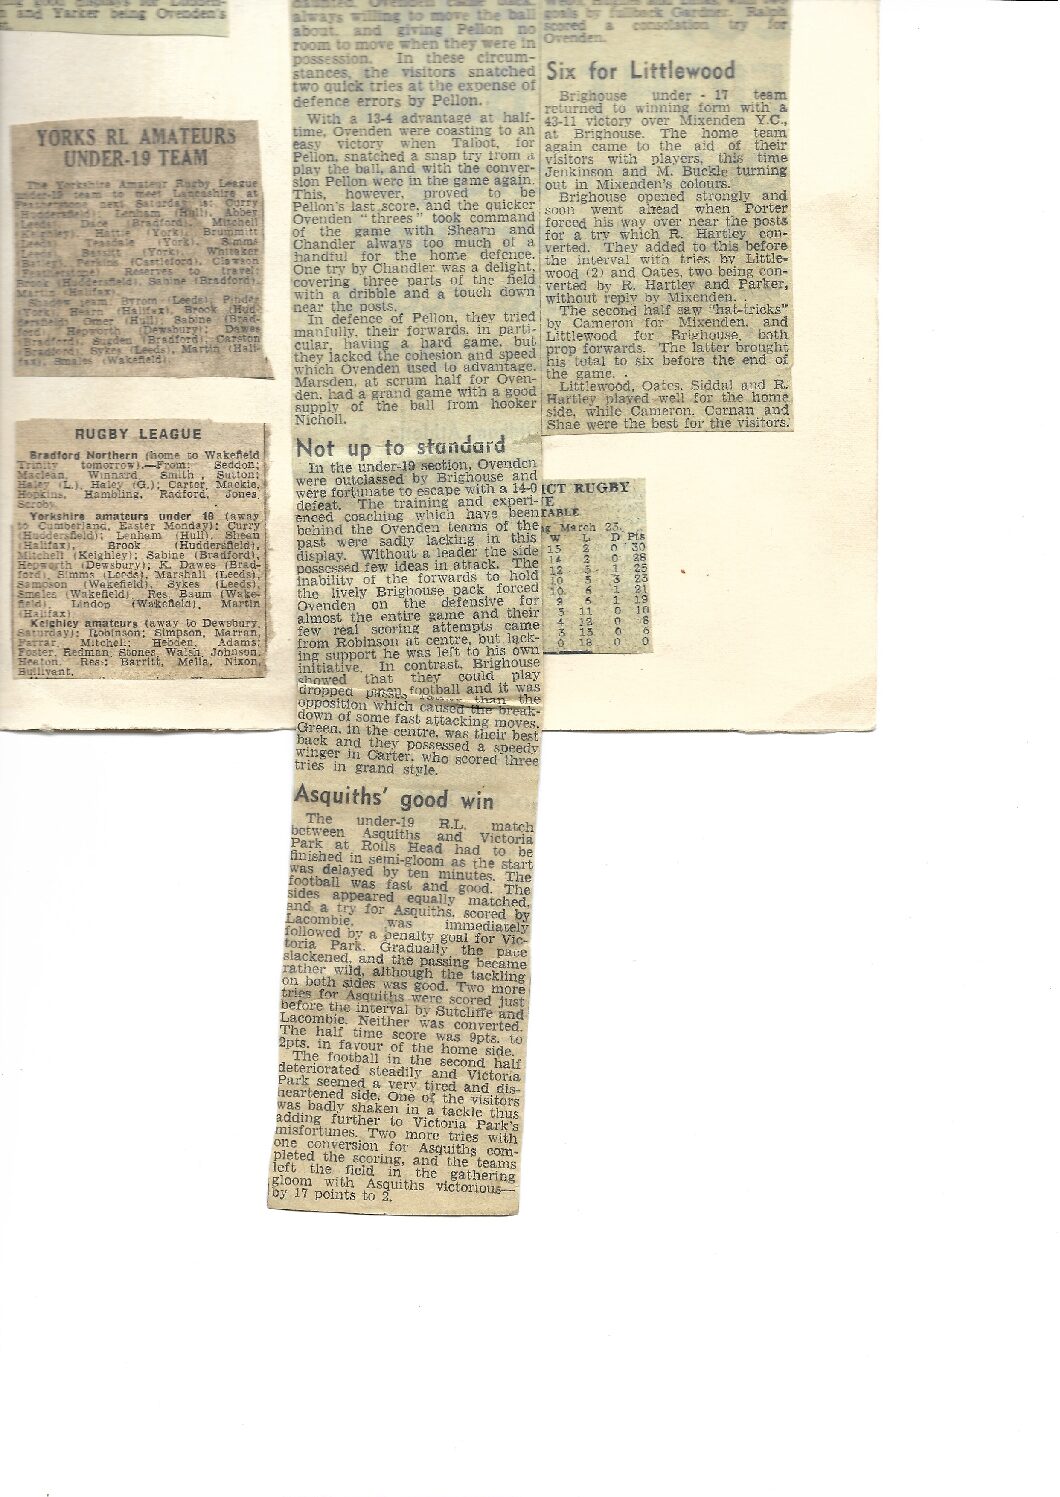 and Yarker being Ovenden's
YORKS RL AMATEURS
UNDER-19 TEAM
The Yorkshire Amateur Rugby League
under-19 team to meet Lancashire at
next Saturday is: Curry
(Huddersfield); Lenham (Hull), Abbey
(Leeds), Dace (Bradford), Mitchell
(Keighley); Hattie (York), Brummitt
(Leeds); Teasdale (York), Simms
(Leeds), Bassitt (York), Whitaker
(Batley), Perkins (Castleford), Clawson
(Featherstone). Reserves to travel:
Brook (Huddersfield), Sabine (Bradford),
Martin (Halifax).
team: Byrom (Leeds); Pinder
(York), Hearn (Halifax), Brook (Hud-
dersfield), Omer (Hull); Sabine (Brad-
ford), Hepworth (Dewsbury); Dawes
(Bradford), Sugden (Bradford), Carston
(Bradford), Sykes (Leeds), Martin (Hali-
fax), Smales (Wakefield).
RUGBY LEAGUE
Bradford Northern (home to Wakefield
Trinity tomorrow).—From: Seddon;
Maclean, Winnard, Smith, Sutton;
Haley (L.), Haley (G.); Carter, Mackie,
Hopkins, Hambling, Radford, Jones,
Scroby.
Yorkshire amateurs under 18 (away
to Cumberland, Easter Monday): Curry
(Huddersfield); Lenham (Hull), Shean
(Halifax), Brook (Huddersfield),
Mitchell (Keighley); Sabine (Bradford),
Hepworth (Dewsbury); K. Dawes (Brad-
ford), Simms (Leeds), Marshall (Leeds),
Sampson (Wakefield), Sykes (Leeds),
Smales (Wakefield). Res. Baum (Wake-
field), Lindop (Wakefield), Martin
(Halifax)
Keighley amateurs (away to Dewsbury,
Saturday): Robinson; Simpson, Marran,
Farrar, Mitchell; Hebden, Adams;
Foster, Redman, Stones, Walsh, Johnson,
Heaton. Res: Barritt, Mella, Nixon,
Bullivant.
always willing to move the ball
about, and giving Pellon no
room to move when they were in
possession. In these circum-
stances, the visitors snatched
two quick tries at the expense of
defence errors by Pellon.
With a 13-4 advantage at half-
time, Ovenden were coasting to an
easy victory when Talbot, for
Pellon, snatched a snap try from a
play the ball, and with the conver-
sion Pellon were in the game again.
This, however, proved to be
Pellon's last score, and the quicker
Ovenden "threes" took command
of the game with Shearn and
Chandler always too much of a
handful for the home defence.
One try by Chandler was a delight,
covering three parts of the field
with a dribble and a touch down
near the posts.
In defence of Pellon, they tried
manfully, their forwards, in parti-
cular, having a hard game, but
they lacked the cohesion and speed
which Ovenden used to advantage.
Marsden, at scrum half for Oven-
den, had a grand game with a good
supply of the ball from hooker
Nicholl.
Not up to standard
In the under-19 section, Ovenden
were outclassed by Brighouse and
were fortunate to escape with a 14-0
defeat. The training and experi-
enced coaching which have been
behind the Ovenden teams of the
past were sadly lacking in this
display. Without a leader the side
possessed few ideas in attack. The
inability of the forwards to hold
the lively Brighouse pack forced
Ovenden on the defensive for
almost the entire game and their
few real scoring attempts came
from Robinson at centre, but lack-
ing support he was left to his own
initiative. In contrast, Brighouse
showed that they could play
football and it was
dropped passes than the
opposition which caused the break-
down of some fast attacking moves.
Green, in the centre, was their best
back and they possessed a speedy
winger in Carter, who scored three
tries in grand style.
Asquiths' good win
The under-19 R.L. match
between Asquiths and Victoria
Park at Roils Head had to be
finished in semi-gloom as the start
was delayed by ten minutes. The
football was fast and good. The
sides appeared equally matched,
and a try for Asquiths, scored by
Lacombie, was immediately
followed by a penalty goal for Vic-
toria Park. Gradually the pace
slackened, and the passing became
rather wild, although the tackling
on both sides was good. Two more
tries for Asquiths were scored just
before the interval by Sutcliffe and
Lacombie. Neither was converted.
The half time score was 9pts. to
2pts. in favour of the home side.
The football in the second half
deteriorated steadily and Victoria
Park seemed a very tired and dis-
heartened side. One of the visitors
was badly shaken in a tackle thus
adding further to Victoria Park's
misfortunes. Two more tries with
one conversion for Asquiths com-
pleted the scoring, and the teams
left the field in the gathering
gloom with Asquiths victorious—
by 17 points to 2.
goals by Gardner. Ralph
scored a consolation try for
Ovenden.
Six for Littlewood
Brighouse under - 17 team
returned to winning form with a
43-11 victory over Mixenden Y.C.,
at Brighouse. The home team
again came to the aid of their
visitors with players, this time
Jenkinson and M. Buckle turning
out in Mixenden's colours.
Brighouse opened strongly and
soon went ahead when Porter
forced his way over near the posts
for a try which R. Hartley con-
verted. They added to this before
the interval with tries by Little-
wood (2) and Oates, two being con-
verted by R. Hartley and Parker,
without reply by Mixenden.
The second half saw "hat-tricks"
by Cameron for Mixenden, and
Littlewood for Brighouse, both
prop forwards. The latter brought
his total to six before the end of
the game.
Littlewood, Oates, Siddal and R.
Hartley played well for the home
side, while Cameron, Curnan and
Shae were the best for the visitors.
ICT RUGBY
E
TABLE
g March 23.
W L D Pts
15 2 0 30
14 2 0 28
12 5 1 25
10 5 3 23
10 6 1 21
9 6 1 19
5 11 0 10
4 12 0 8
3 15 0 6
0 18 0 0